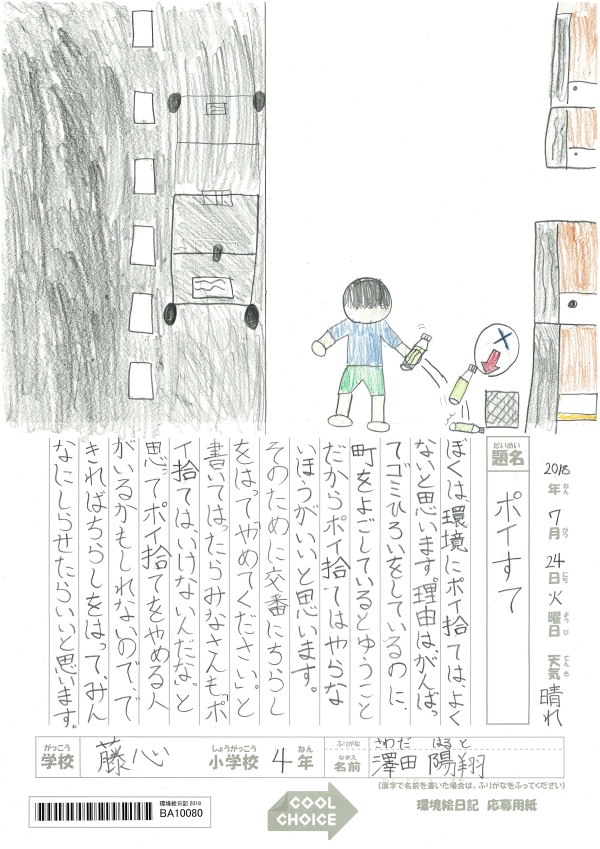 2018年ねん7月がつ24日にち火曜日ようび 天気てんき晴れ
題名だいめい ポイすて
ぼくは、環境にポイ捨ては、よく
ないと思います。理由は、がんばっ
てゴミひろいをしているのに、
町をよごしているとゆうこと
だからポイ捨てはやらな
いほうがいいと思います。
そのために交番にちらし
をはって「やめてください。」と
書いてはったらみなさんも「ポ
イ捨てはいけないんだな。」と
思ってポイ捨てをやめる人
がいるかもしれないので、で
きればちらしをはって、みん
なにしらせたらいいと思います。
学校がっこう 藤心 小学校しょうがっこう 4年ねん
ふりがな さわだ はると
名前なまえ 澤田 陽翔
(漢字で名前を書いた場合は、ふりがなをふってください)
環境絵日記 2018
BA10080
COOL
CHOICE
環境絵日記 応募用紙